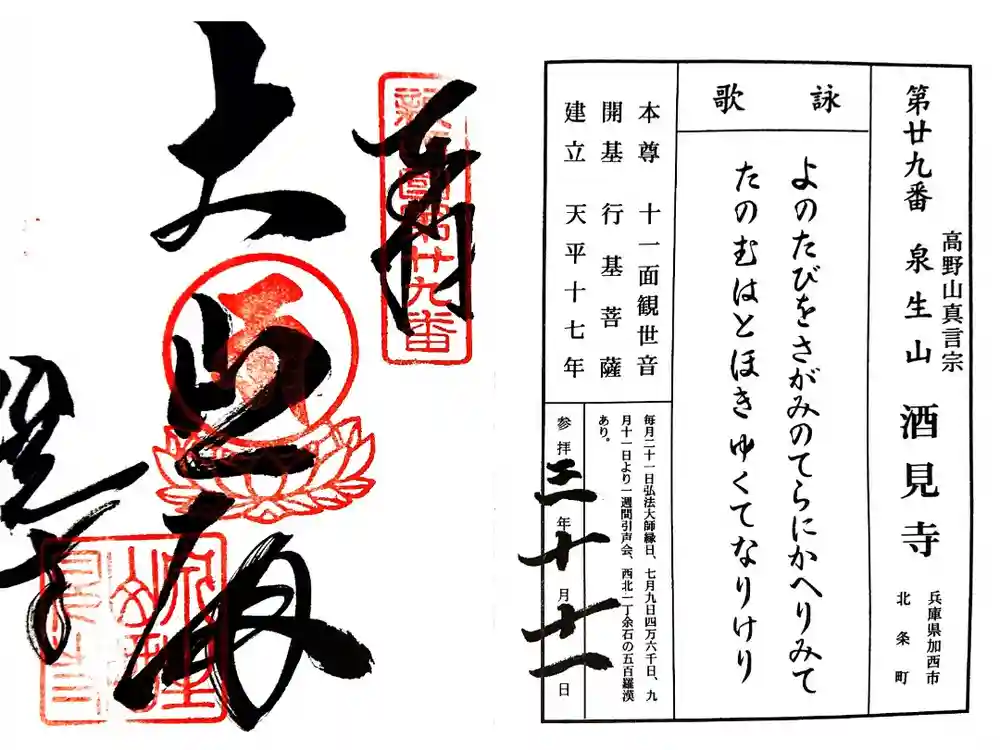 第廿九番 泉生山 酒見寺
高野山真言宗
兵庫県加西市
北条町
詠歌
よのたびをさがみのてらにかへりみて
たのむはとほき ゆくてなりけり
本尊 十一面観世音
開基 行基菩薩
建立 天平十七年
毎月二十一日弘法大師縁日、七月九日四万六千日、九
月十一日より一週間引声会、西北一丁余石の五百羅漢
あり。
参拝三年十月十一日
奉拝
新西國第廿九番
大悲殿
酒見寺